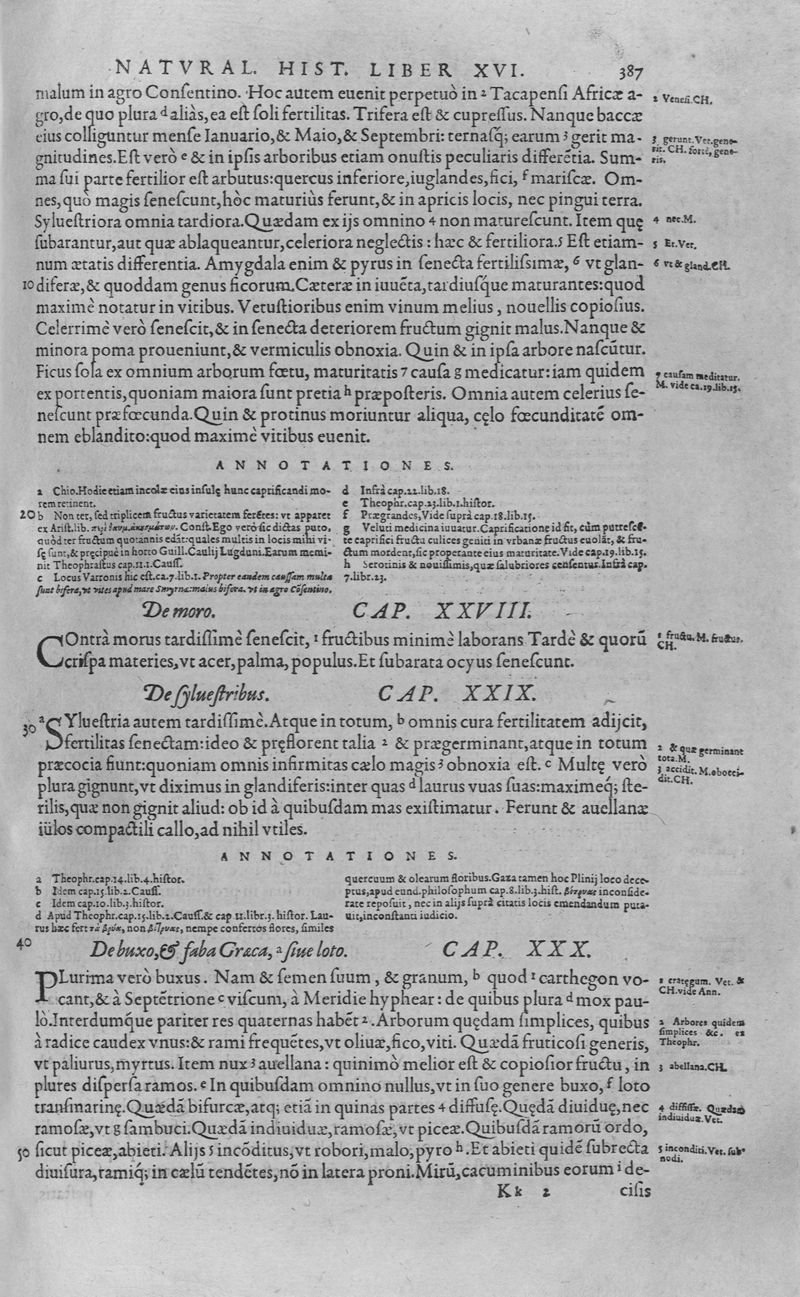 NATVRAL. HIST. LIBER XVI. 387
malum in agro Consentino. Hoc autem euenit perpetuò in ² Tacapensi Africæ a-
gro, de quo plura ᵈ aliàs, ea est soli fertilitas. Trifera est & cupressus. Nanque baccæ
eius colliguntur mense Ianuario, & Maio, & Septembri: ternasq; earum ³ gerit ma-
gnitudines. Est verò ᵉ & in ipsis arboribus etiam onustis peculiaris differẽtia. Sum-
ma sui parte fertilior est arbutus: quercus inferiore, iuglandes, fici, ᶠ mariscæ. Om-
nes, quò magis senescunt, hòc maturiùs ferunt, & in apricis locis, nec pingui terra.
Syluestriora omnia tardiora. Quædam ex ijs omnino 4 non maturescunt. Item quę
subarantur, aut quæ ablaqueantur, celeriora neglectis: hæc & fertiliora. 5 Est etiam-
num ætatis differentia. Amygdala enim & pyrus in senecta fertilissimæ, ⁶ vt glan-
10 diferæ, & quoddam genus ficorum. Cæteræ in iuuẽta, tardiusque maturantes: quod
maximè notatur in vitibus. Vetustioribus enim vinum melius, nouellis copiosius.
Celerrimè verò senescit, & in senecta deteriorem fructum gignit malus. Nanque &
minora poma proueniunt, & vermiculis obnoxia. Quin & in ipsa arbore nascũtur.
Ficus sola ex omnium arborum fœtu, maturitatis 7 causa g medicatur: iam quidem
ex portentis, quoniam maiora sunt pretia ʰ præposteris. Omnia autem celerius se-
nescunt præfœcunda. Quin & protinus moriuntur aliqua, cęlo fœcunditatẽ om-
nem eblandito: quod maximè vitibus euenit.
2 Venesi. CH.
3 gerunt. Vet. gene-
rit. CH. fortè, gene-
ris.
4 nec. M.
5 Et. Vet.
6 vt & gland. CH.
7 causam meditatur.
M. vide ca. 19. lib. 15.
ANNOTATIONES.
a Chio. Hodie etiam incolæ eius insulę hunc caprificandi mo-
rem retinent.
20 b Non ter, sed triplicem fructus varietatem ferẽtes: vt apparet
ex Arist. lib. Const. Ego verò sic dictas puto,
quòd ter fructum quotannis edãt: quales multis in locis mihi vi-
sę sunt, & pręcipuè in horto Guill. Caulij Lugduni. Earum memi-
nit Theophrastus cap. 11. 1. Causs.
c Locus Varronis hic est. ca. 7. lib. 1. Propter eandem caussam multa
sunt bifera, vt vites apud mare Smyrnæ: malus bifera. vt in agro Cõsentino.
d Infrà cap. 22. lib. 18.
e Theophr. cap. 23. lib. 1. histor.
f Prægrandes, Vide suprà cap. 18. lib. 15.
g Veluti medicina iuuatur. Caprificatione id fit, cùm putrescẽ-
te caprifici fructu culices geniti in vrbanæ fructus euolãt, & fru-
ctum mordent, sic properante eius maturitate. Vide cap. 19. lib. 15.
h Serotinis & nouissimis, quæ salubriores censentur. Infrà cap.
7. lib. 23.
De moro. CAP. XXVIII.
COntrà morus tardissimè senescit, ¹ fructibus minimè laborans Tardè & quorũ
crispa materies, vt acer, palma, populus. Et subarata ocyus senescunt.
1 fructu. M. fructus.
CH.
De syluestribus. CAP. XXIX.
30 ᵃ SYluestria autem tardissimè. Atque in totum, ᵇ omnis cura fertilitatem adijcit,
fertilitas senectam: ideo & pręflorent talia ² & prægerminant, atque in totum
præcocia fiunt: quoniam omnis infirmitas cælo magis ³ obnoxia est. ᶜ Multę verò
plura gignunt, vt diximus in glandiferis: inter quas ᵈ laurus vuas suas: maximeq́; ste-
rilis, quæ non gignit aliud: ob id à quibusdam mas existimatur. Ferunt & auellanæ
iülos compactili callo, ad nihil vtiles.
2 & quæ germinant
tota. M.
3 accidit. M. obœdi-
dit. CH.
ANNOTATIONES.
a Theophr. cap. 14. lib. 4. histor.
b Idem cap. 15. lib. 2. Cauff.
c Idem cap. 10. lib. 3. histor.
d Apud Theophr. cap. 15. lib. 2. Cauff. & cap 11. libr. 3. histor. Lau-
rus hæc fert τὰ βρύα, non βότρυας, nempe confertos flores, similes
quercuum & olearum floribus. Gaza tamen hoc Plinij loco dece-
ptus, apud eund. philosophum cap. 8. lib. 3. hist. βότρυας inconside-
rate reposuit, nec in alijs suprà citatis locis emendandum puta-
uit, inconstanti iudicio.
40 De buxo, & faba Græca, ᵃ siue loto. CAP. XXX.
PLurima verò buxus. Nam & semen suum, & granum, ᵇ quod ¹ carthegon vo-
cant, & à Septẽtrione ᶜ viscum, à Meridie hyphear: de quibus plura ᵈ mox pau-
lò. Interdumque pariter res quaternas habẽt ². Arborum quędam simplices, quibus
à radice caudex vnus: & rami frequẽtes, vt oliuæ, fico, viti. Quædã fruticosi generis,
vt paliurus, myrtus. Item nux ³ auellana: quinimò melior est & copiosior fructu, in
plures dispersa ramos. ᵉ In quibusdam omnino nullus, vt in suo genere buxo, ᶠ loto
transmarinę. Quædã bifurcæ, atq; etiã in quinas partes 4 diffusę. Quędã diuiduę, nec
ramosæ, vt g sambuci. Quædã indiuiduæ, ramosæ, vt piceæ. Quibusdã ramorũ ordo,
50 sicut piceæ, abieti. Alijs 5 incõditus, vt robori, malo, pyro ʰ. Et abieti quidẽ subrecta
diuisura, ramiq́; in cælũ tendẽtes, nõ in latera proni. Mirũ, cacuminibus eorum ⁱ de-
1 cratęgum. Vet. &
CH. vide Ann.
2 Arbores quidem
simplices &c. ex
Theophr.
3 abellana. CH.
4 diffissæ. Quædam
indiuiduæ. Vet.
5 inconditi. Vet. sub
nodi.
Kk 2 cisis